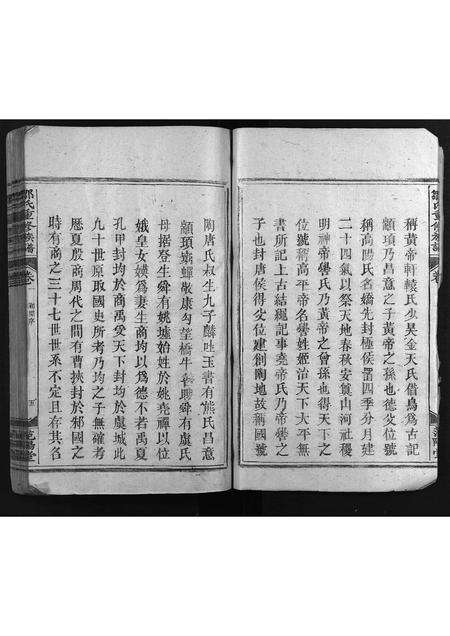 稱黃帝軒轅氏少昊金天氏借鳥為古記
顓頊乃昌意之子黃帝之孫也德爻位號
稱高陽氏名嬌先封極侯畱四季分月建
二十四氣以祭天地春秋安奠山河社稷
明神帝嚳氏乃黃帝之曾孫也得天下之
位號稱高平帝名嚳姓姬治天下太平無
書所記上古結繩記事堯帝氏乃帝嚳之
子也封唐侯得爻位建創陶地故稱國號
陶唐氏叔生九子麟吐玉書有熊氏昌意
顓頊窮蟬敬康勾望橋牛瞽瞍舜有虞氏
母握登生舜有姚墟始姓於姚堯禪以位
娥皇女媖為妻生商均以為德不若禹夏
孔甲封均於商禹受天下封均於虞城此
九十世原取國史所考乃均之子無確考
歷夏殷商周代之間有曹挾封於邾國之
時有商之三十七世世系不定且存其名
鄒氏重修族譜
卷一
五
范陽堂